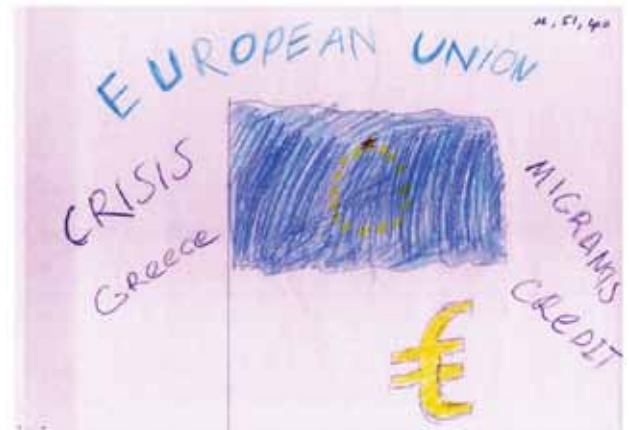 M, 51, 40
EUROPEAN UNION
CRISIS
Greece
MIGRANTS
CREDIT
€